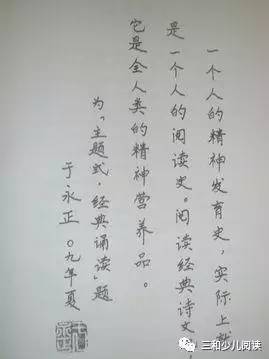 一个人的精神发育史，实际上就
是一个人的阅读史。阅读经典诗文
它是全人类的精神营养品。
为“主题式·经典诵读”题
于永正 〇九年夏
三和少儿阅读